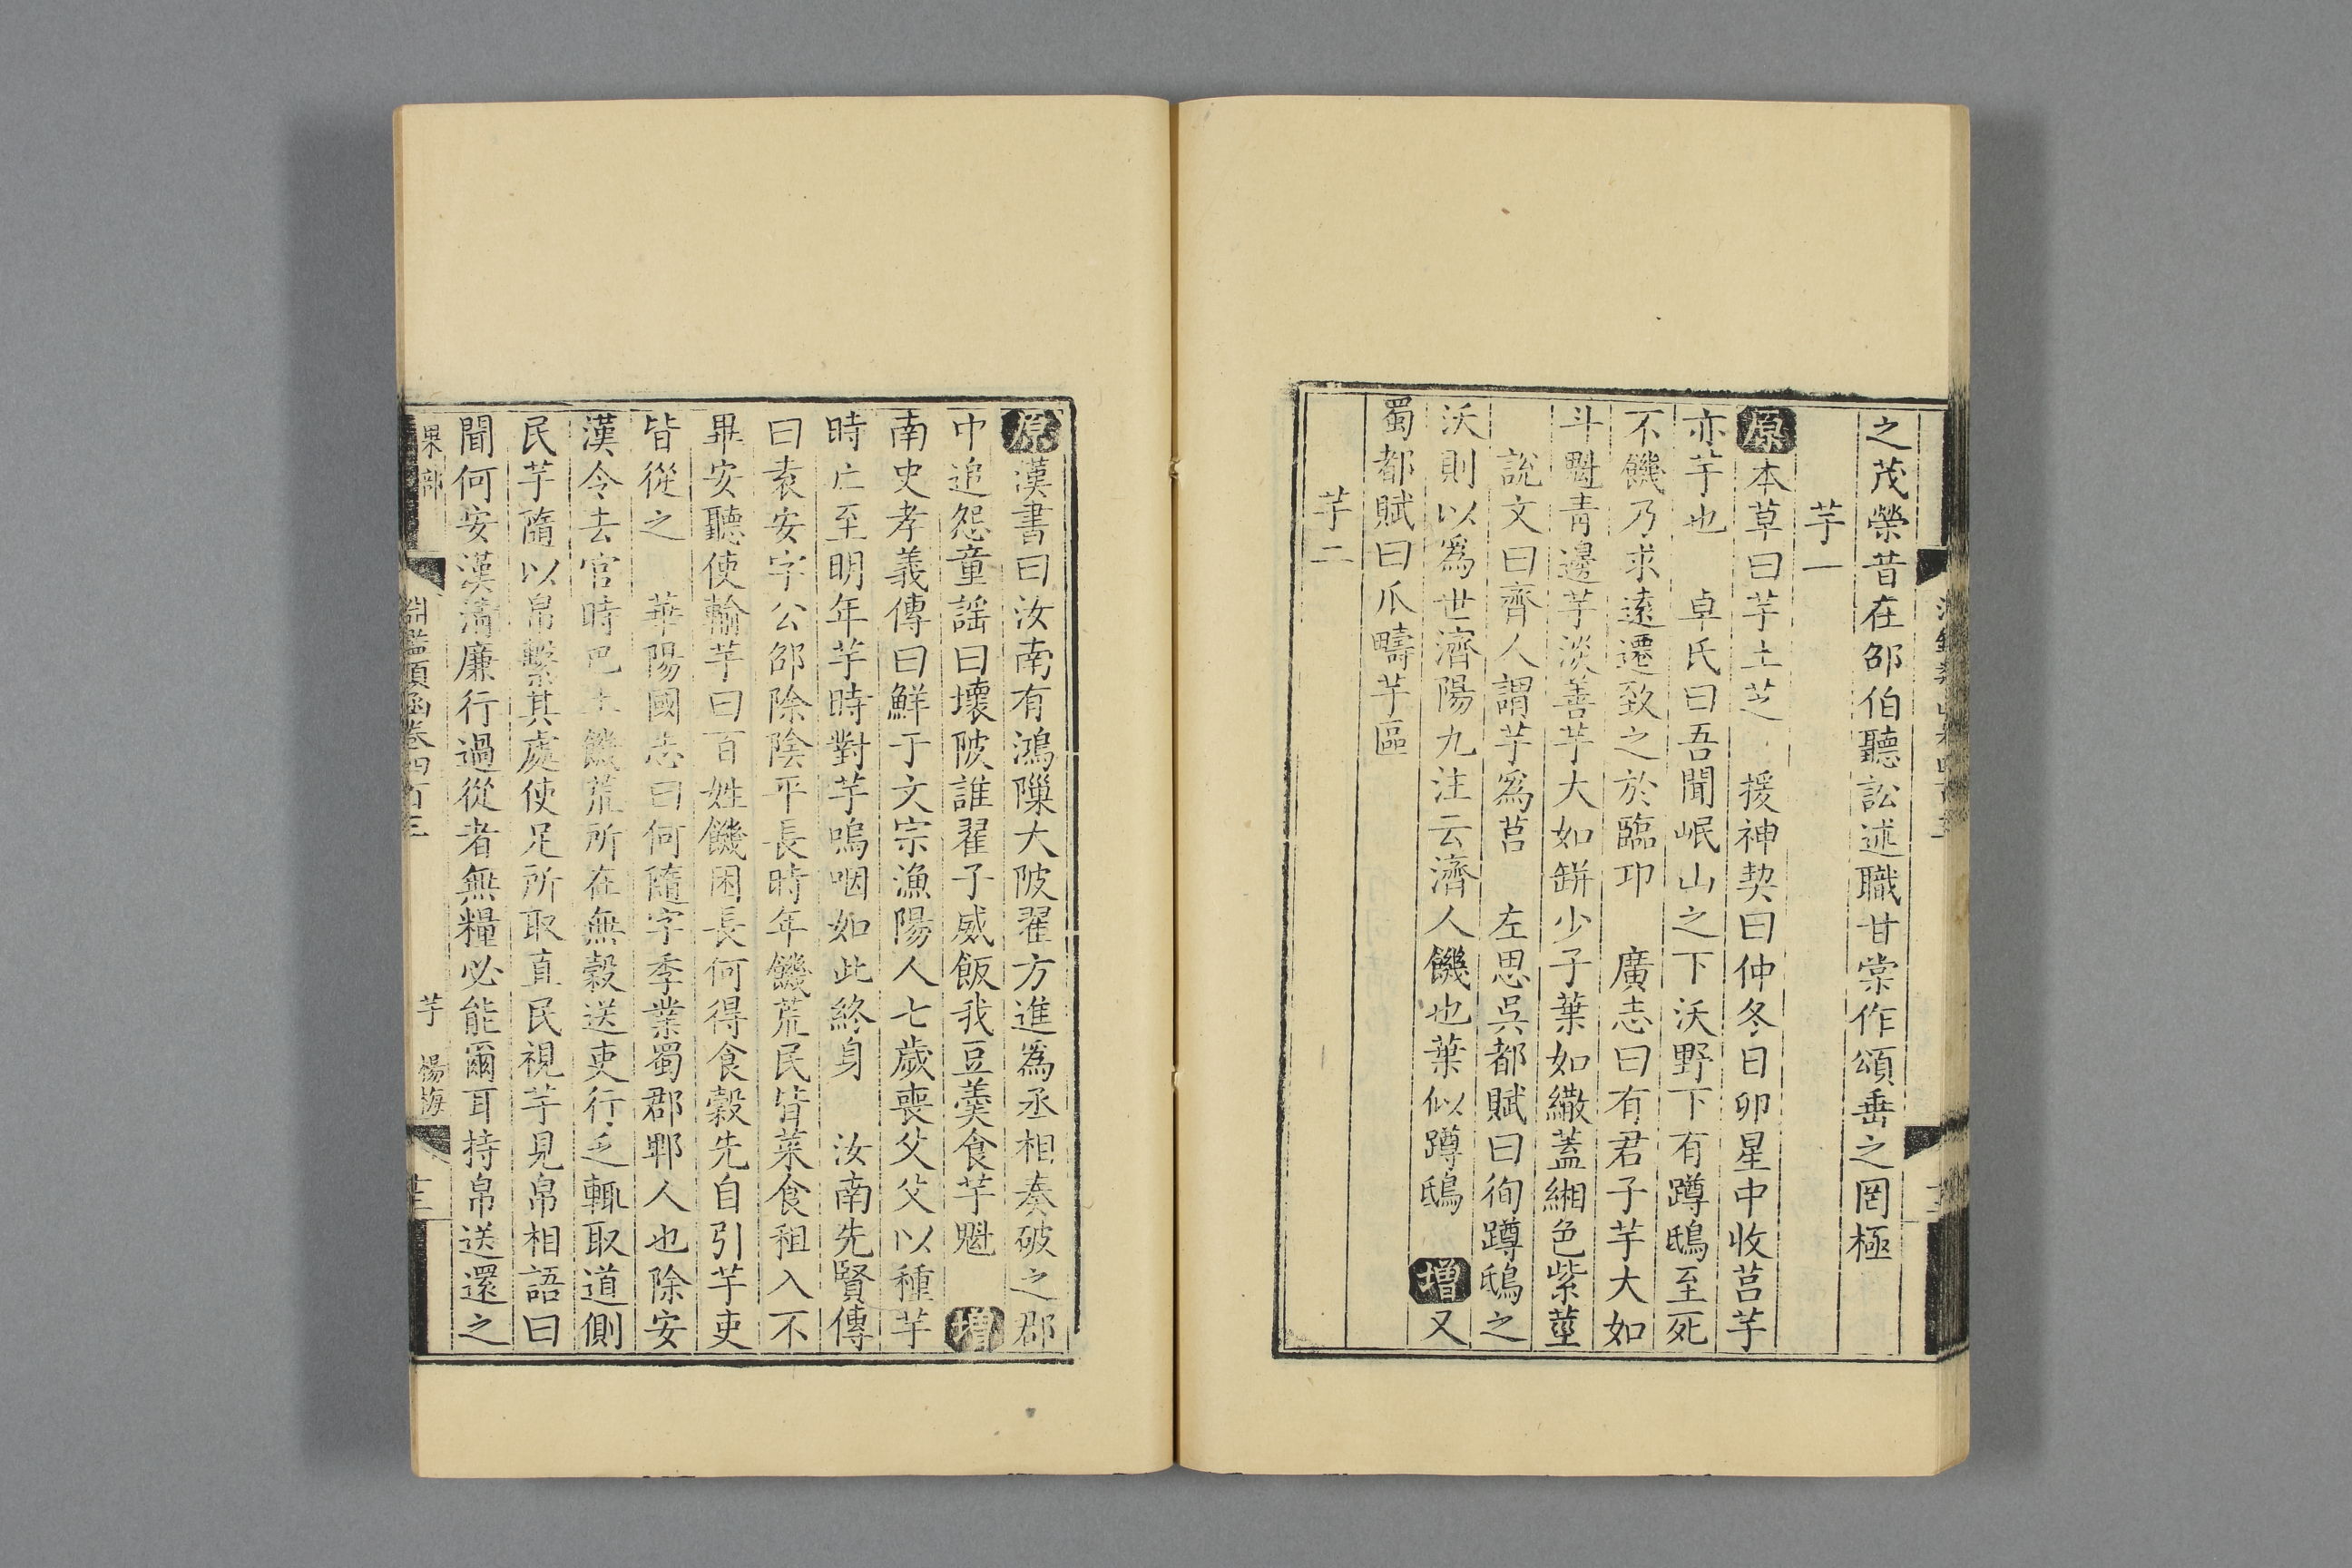 之茂榮昔在邵伯聽訟述職甘棠作頌垂之罔極
芋一
原本草曰芋土芝 援神契曰仲冬日卯星中收莒芋
亦芋也 卓氏曰吾聞岷山之下沃野下有蹲鴟至死
不饑乃求遠遷致之於臨卭 廣志曰有君子芋大如
斗魁青邊芋淡善芋大如缾少子葉如繖蓋緗色紫莖
說文曰齊人謂芋爲莒 左思吳都賦曰徇蹲鴟之
沃則以爲世濟陽九注云濟人饑也葉似蹲鴟 增又
蜀都賦曰瓜疇芋區
芋二
原漢書曰汝南有鴻隟大陂翟方進爲丞相奏破之郡
中追怨童謡曰壞陂誰翟子威飯我豆羹食芋魁 增
南史孝義傳曰鮮于文宗漁陽人七歲喪父父以種芋
時亡至明年芋時對芋嗚咽如此終身 汝南先賢傳
曰袁安字公邵除陰平長時年饑荒民皆菜食租入不
畢安聽使輸芋曰百姓饑困長何得食穀先自引芋吏
皆從之 華陽國志曰何隨字季業蜀郡郫人也除安
漢令去官時巴土饑荒所在無穀送吏行乏輒取道側
民芋隨以帛繫其處使足所取直民視芋見帛相語曰
聞何安漢清廉行過從者無糧必能爾耳持帛送還之
果部 淵鑑類函卷四百三 芋 楊梅